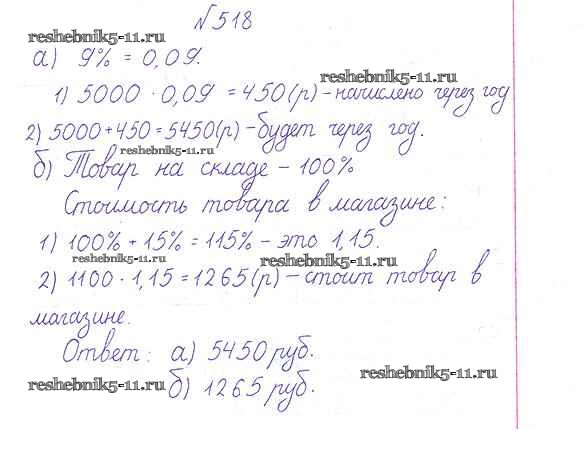 №518
reshebnik5-11.ru
а) 9% = 0,09.
reshebnik5-11.ru
1) 5000 · 0,09 = 450(р) – начислено через год
2) 5000 + 450 = 5450(р) – будет через год.
reshebnik5-11.ru
б) Товар на складе – 100%
Стоимость товара в магазине:
1) 100% + 15% = 115% – это 1,15.
reshebnik5-11.ru reshebnik5-11.ru
2) 1100 · 1,15 = 1265(р) – стоит товар в
магазине.
Ответ: а) 5450 руб.
reshebnik5-11.ru
б) 1265 руб.
reshebnik5-11.ru